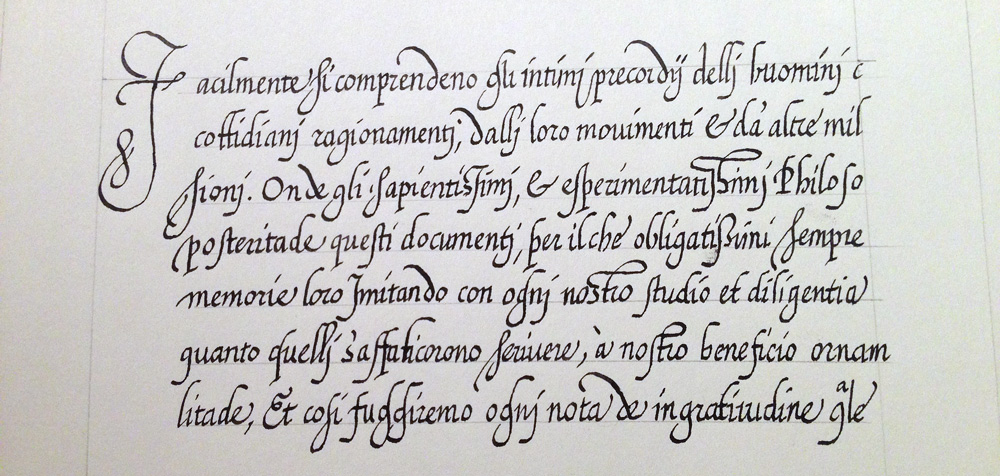 Facilmente si comprendeno gli intimj precordij dellj huominj c
cottidianj ragionamentj, dallj loro mouimenti & da altre mil
sionj. Onde gli sapientissimj, & esperimentatissimj Philoso
posteritade questi documentj, per il che obligatissimi sempre
memorie loro Imitando con ognj nostro studio et diligentia
quanto quellj s'affaticorono scriuere, à nostro beneficio ornam
litade, Et cosi fuggiremo ognj nota de ingratitudine q̃le